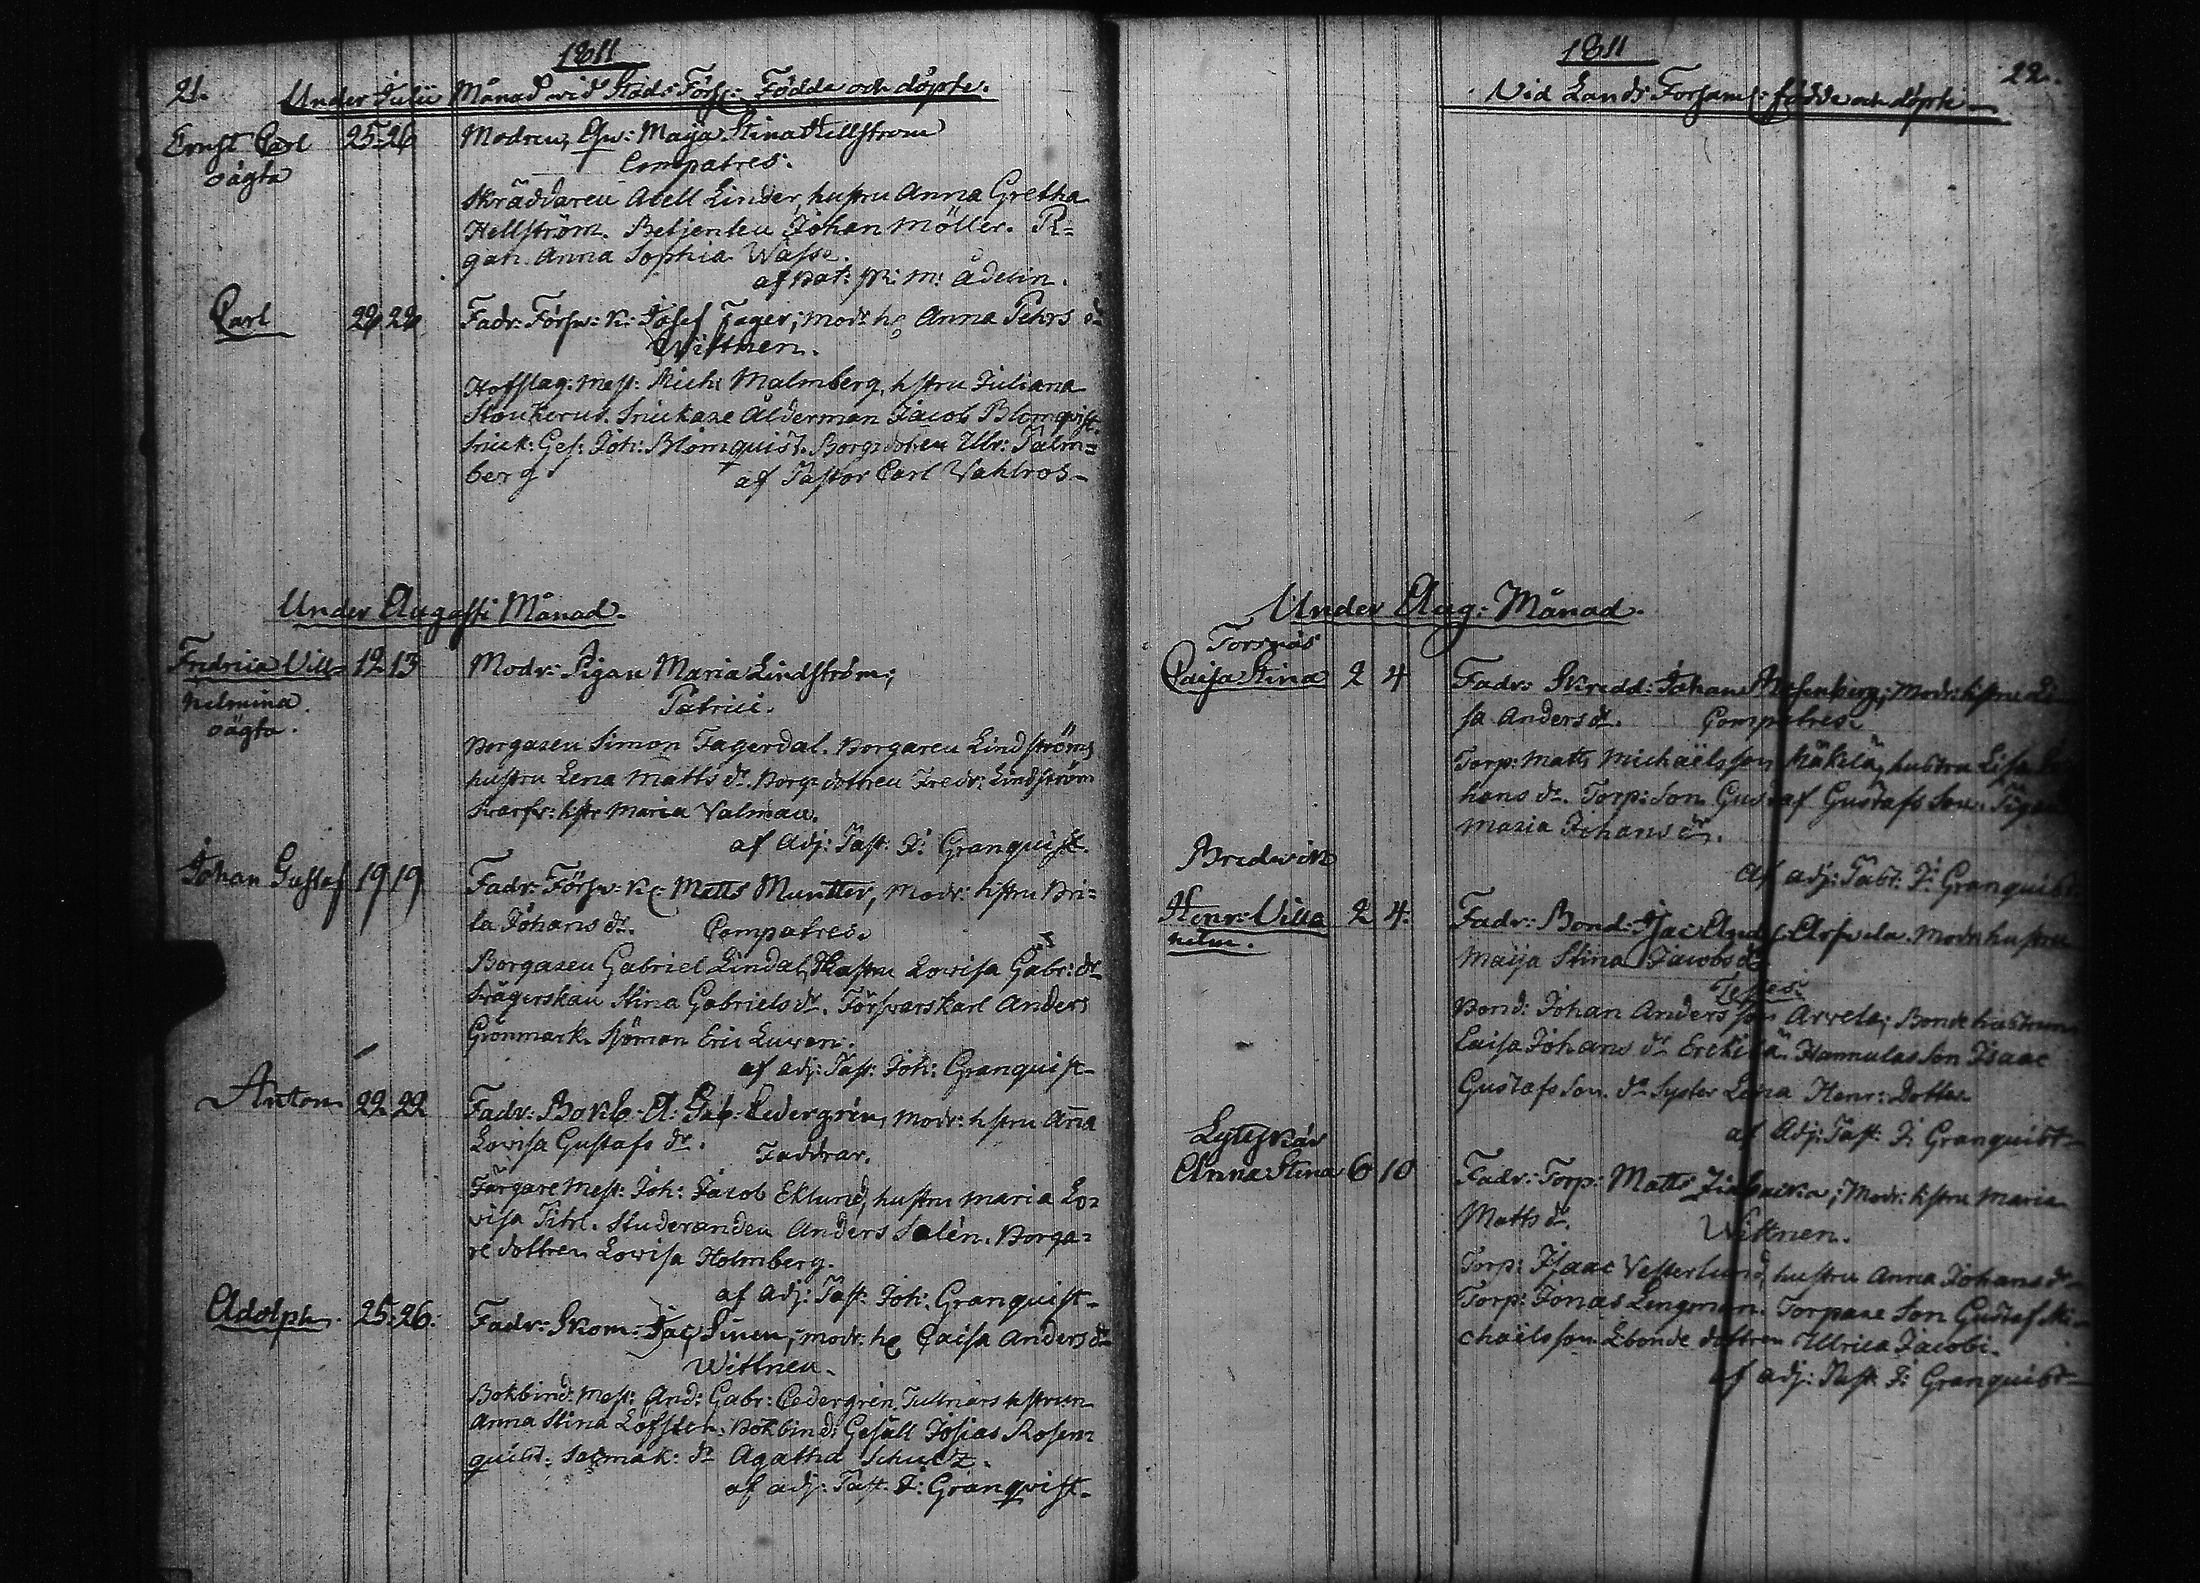 1811
21. Under Julii Månad vid Stads Förs: Födde och döpte.
Ernst Carl 25 26 Modren, Maija Stina Hellstrom
oägta Compatres.
Skräddaren Linder, hustru Anna Gretha
Hellström. Betjenten Johan Möller. Pi=
gan Anna Sophia Wasse.
af Past:
Carl 28 28 Fadr: Försv: K: Josef Fager; modr: h; Anna Pehrs dr
Wittnen.
Hofslag: Mest: Mich: Malmberg, hstru Juliana
Snickare Ålderman Jacob Blomqvist.
Snick: Ges: Joh: Blomquist. Borg: dotren Ulr: Palm=
berg. af Pastor Carl Vahlros-
Under Augusti Månad.
Fredrica Vill= 12 13 Modr: Pigan Maria Lindström;
helmina. Patrici.
oägta. Borgaren Simon Fagerdal. Borgaren Lindströms
hustru Lena Matts dr. Borg: dottren Fredr: Lindström
hstr Maria Valman.
af Adj: Past: J: Granquist.
Johan Gustaf 19 19 Fadr: Försv: K: Matts Muntter, Modr: hstru Bri=
ta Johans dr. Compatres.
Borgaren Gabriel Lindal, Hustru Lovisa Gabr: dr
Stina Gabriels dr. Försvarskarl Anders
Grönmark. Sjöman Eric
af adj: Past: Joh: Granquist-
Anton 22 22 Fadr: Bokb: A: Gab: Cedergrén, modr: hstru Anna
Lovisa Gustafs dr. Faddrar.
Färgare Mest: Joh: Jacob Eklund, hustru Maria Lo=
visa Studeranden Anders Salén. Borga=
re dottren Lovisa Holmberg.
af Adj: Past: Joh: Granquist-
Adolph. 25. 26. Fadr: Skom: Jac; modr: h; Caisa Anders dr
Wittnen.
Bokbind: Mest: And: Gabr: Cedergrén, Tullnärs hstrun
Anna Stina Löfsten. Bokbind: Gesäll Josias Rosen=
quist. dr Agatha Schultz.
af adj: Past: J: Granqvist-
1811
22.
Vid Lands Forsaml: födde och döpte
Under Aug: Månad.
Torsnäs
Caisa Stina 2 4 Fadr: Skredd: Johan Modr: hstru Li=
sa Anders dr. Compatres.
Torp: Matts Michaëlsson Mäkelä, hustru Lisa Jo=
hans dr. Torp: Son Gustaf Gustafs Son. Pigan
Maria Johans dr.
Bredvik Af adj: Past: J: Granquist.
Henr: Villa 2 4. Fadr: Bond: Jac Modr: hustru
helm. Maija Stina Jacobs dr
Testes:
Bond: Johan Anders son Arvela; Bonde hustrun
Caisa Johans dr Erckilä. Hannulas Son Isaac
Gustafs Son. dr Syster Lena Henr: Dotter
af Adj: Past: J: Granquist-
Anna Stina 6 10 Fadr: Torp: Matts Modr: hstru Maria
Matts dr. Wittnen.
Torp: Isaac Vesterlund, hustru Anna Johans dr
Torp: Jonas Lengman. Torpare Son Gustaf Mi=
chaëlsson. Ebonde dottren Ullrica Jacobi.
af adj: Past: J: Granquist-